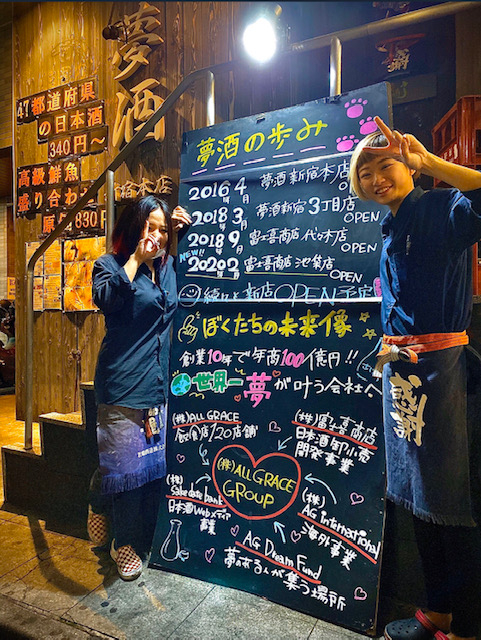 夢酒
47都道府県
の日本酒
340円〜
高級鮮魚
盛り合わ
830円
本店
夢酒の歩み
2016年4月 夢酒新宿本店 OPEN
2018年3月 夢酒新宿3丁目店 OPEN
2018年9月 富士喜商店代々木店 OPEN
NEW!!
2020年2月 富士喜商店池袋店 OPEN
続々と新店OPEN予定
ぼくたちの未来像
創業10年で年商100億円!!
世界一夢が叶う会社へ
(株)ALL GRACE
飲食店120店舗
(株)富士喜商店
日本酒卸小売
開発事業
(株)ALL GRACE
GROUP
(株)
Sake date bank
日本酒Webメディア
事業
(株)
AG international
海外事業
AG Dream Fund
夢のある人が集う場所